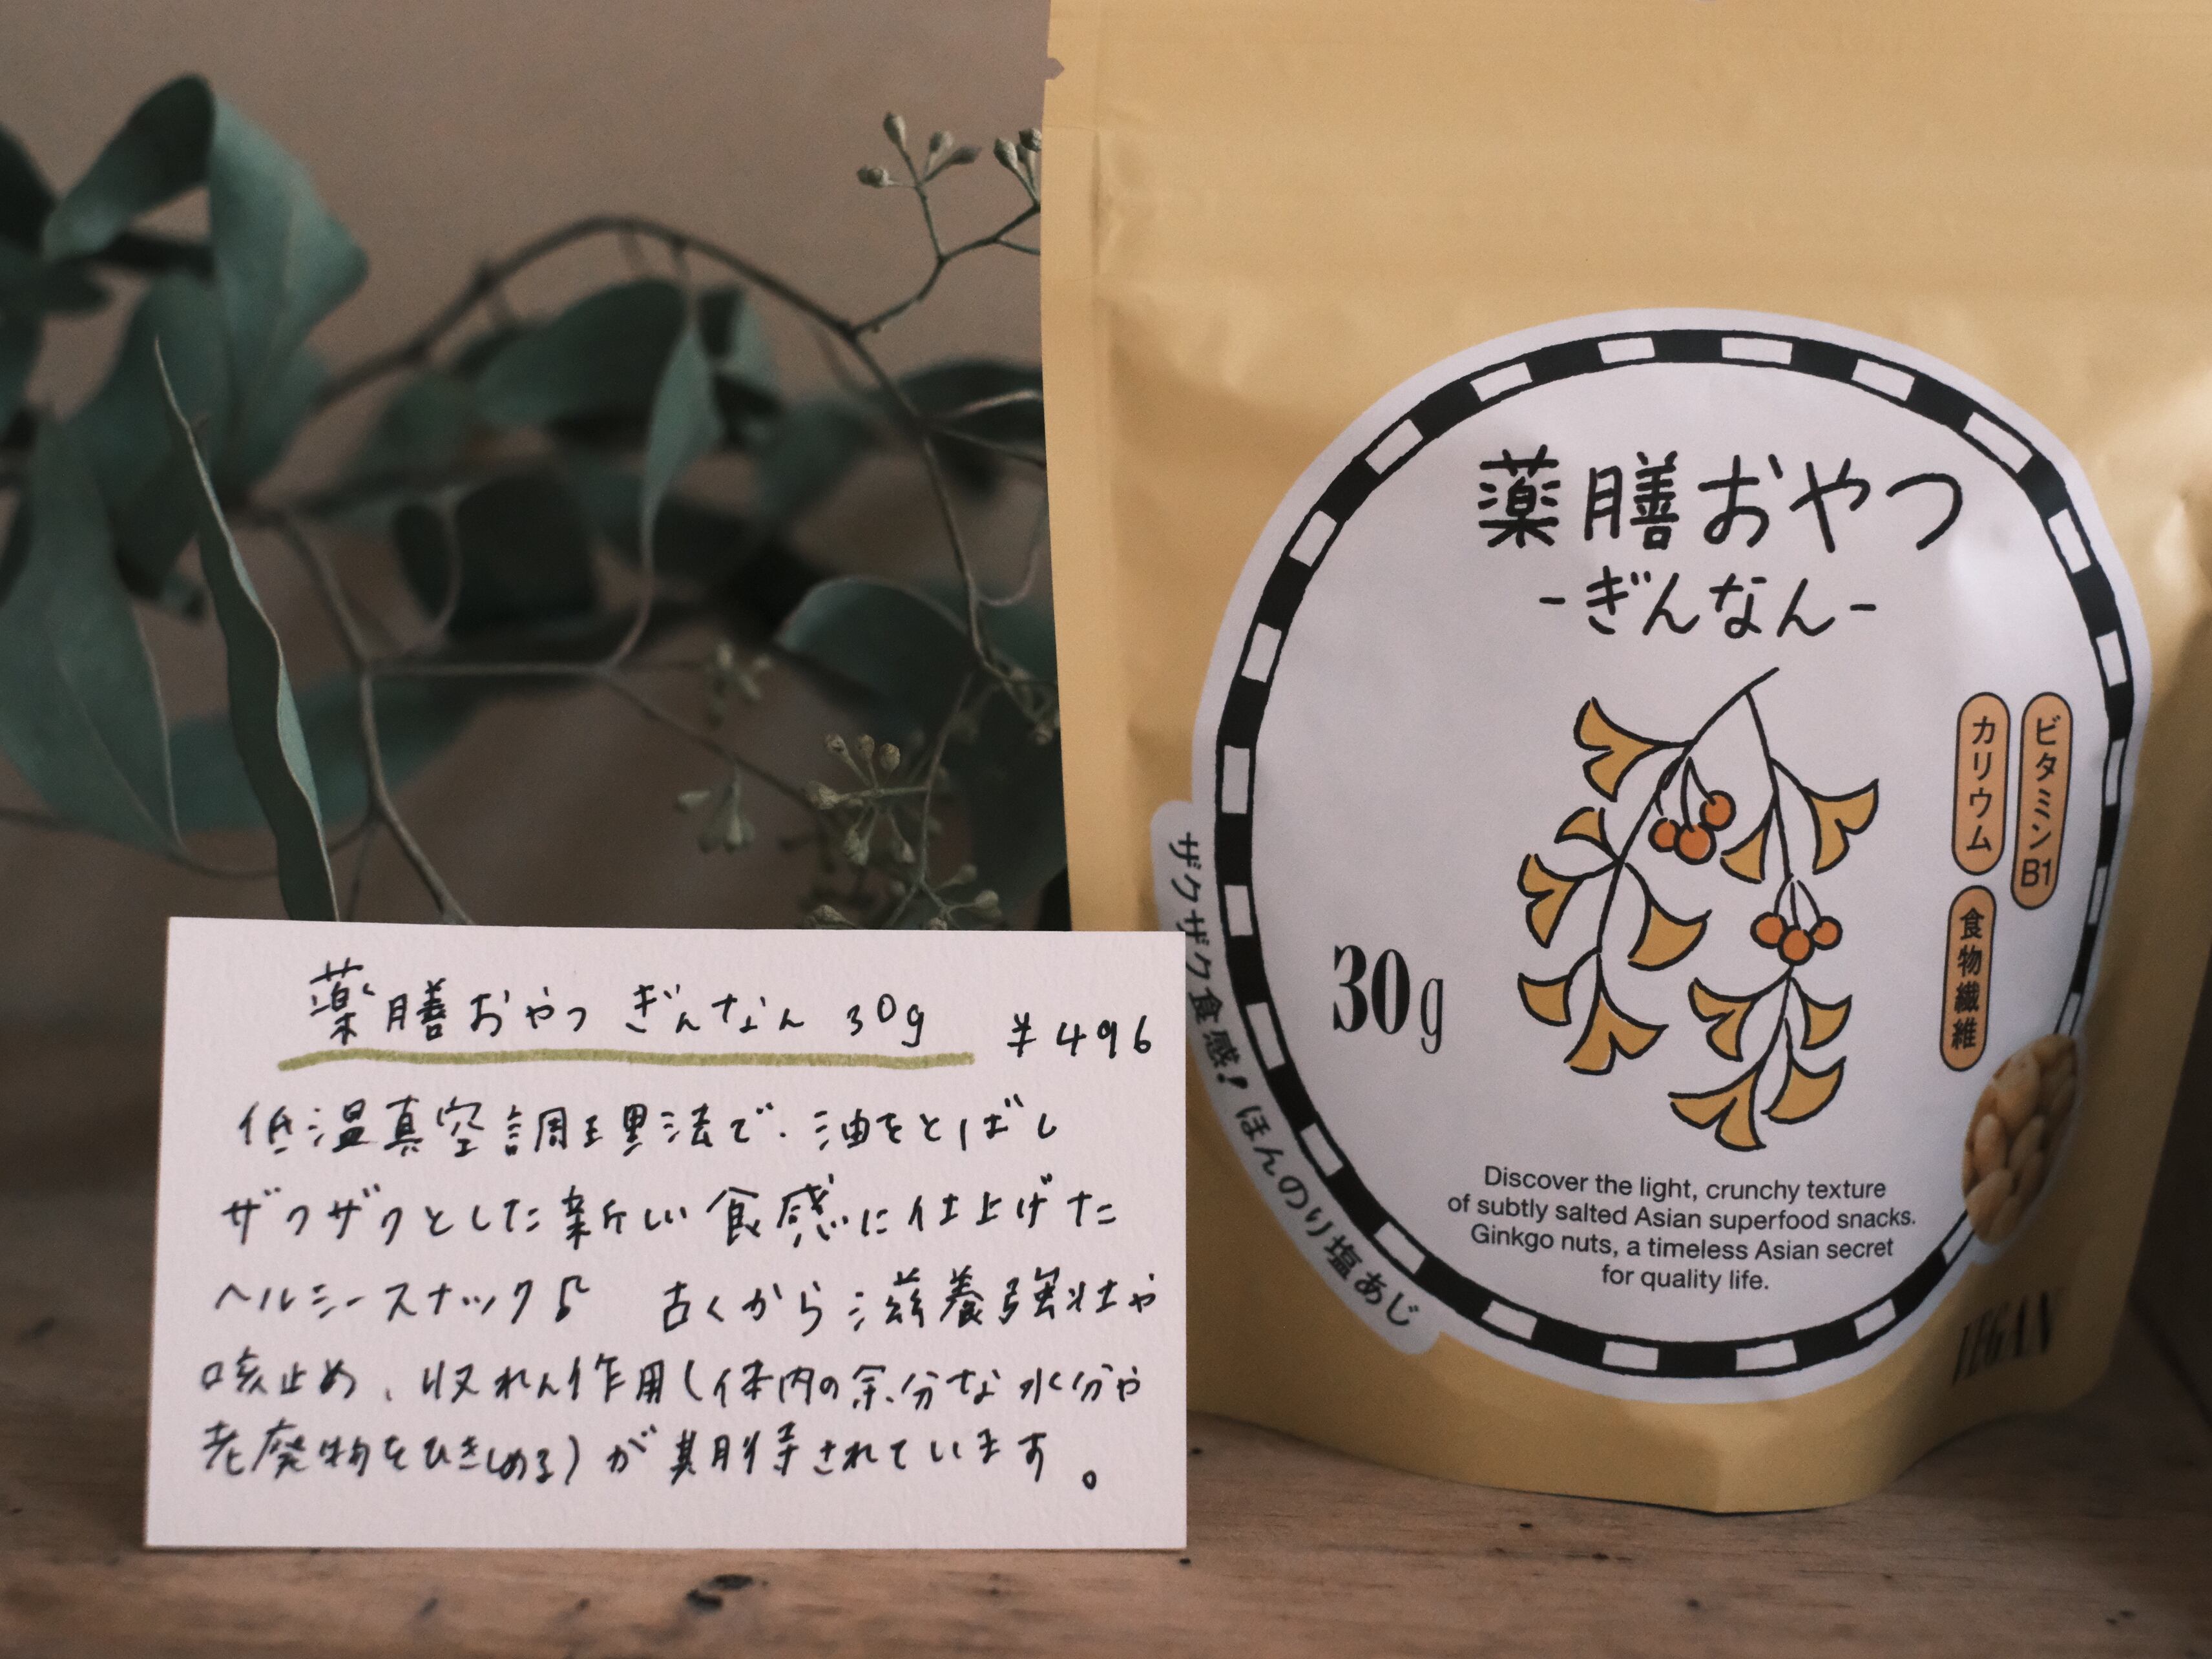 薬膳おやつ ぎんなん 30g ¥496
低温真空調理法で、油をとばし
ザクザクとした新しい食感に仕上げた
ヘルシースナック♪ 古くから滋養強壮や
咳止め、収れん作用(体内の余分な水分や
老廃物をひきしめる)が期待されています。
薬膳おやつ
-ぎんなん-
ビタミンB1
カリウム
食物繊維
30g
ザクザク食感!ほんのり塩あじ
Discover the light, crunchy texture
of subtly salted Asian superfood snacks.
Ginkgo nuts, a timeless Asian secret
for quality life.
VEGAN